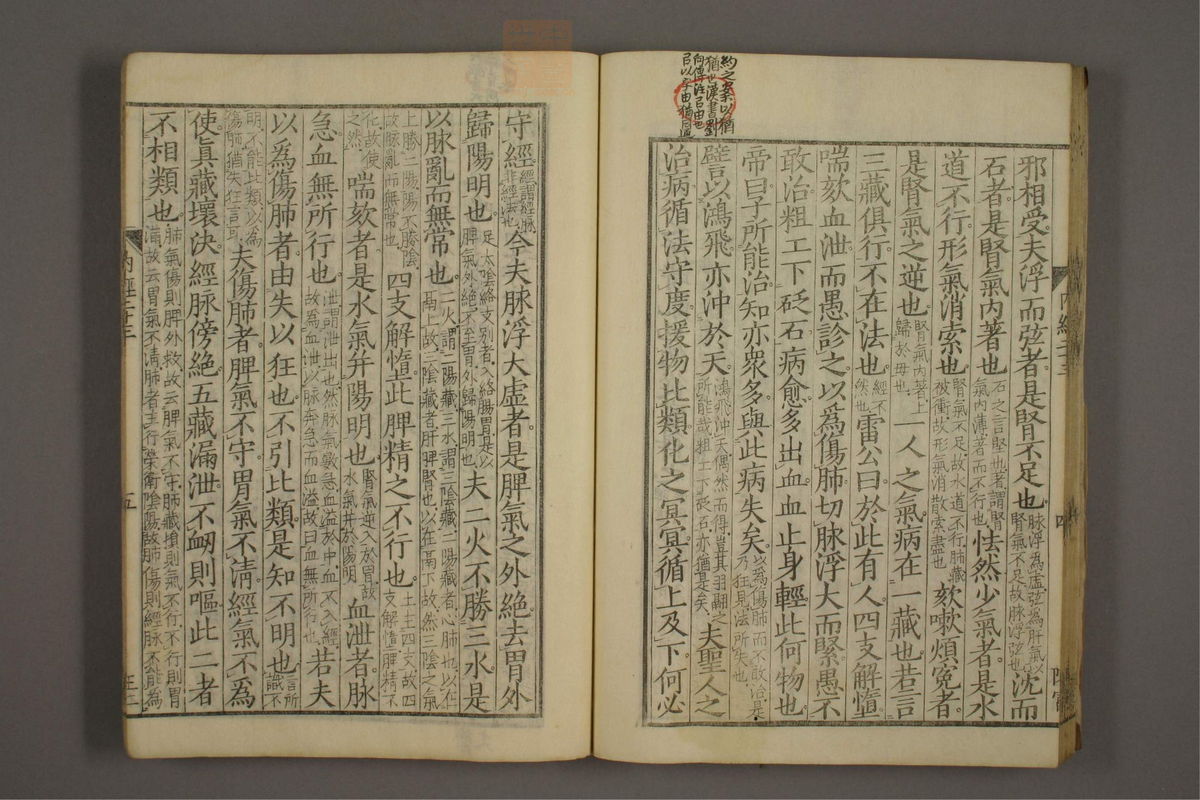 約之案以猶
猶也漢書劉
邪相受夫浮而弦者是腎不足也脉浮為虛弦為肝氣以腎氣不足故脉浮弦也沈而
石者是腎氣內著也石之言堅也著謂腎氣內薄著而不行也怯然少氣者是水
道不行形氣消索也腎氣不足故水道不行肺藏被衝故形氣消散索盡也欬嗽煩冤者
是腎氣之逆也腎氣內著上歸於母也一人之氣病在一藏也若言
三藏俱行不在法也經不然也雷公曰於此有人四支解墮
喘欬血泄而愚診之以為傷肺切脉浮大而緊愚不
敢治粗工下砭石病愈多出血血止身輕此何物也
帝曰子所能治知亦衆多與此病失矣以為傷肺而不敢治是乃狂見法所失也
譬以鴻飛亦沖於天鴻飛沖天偶然而得豈其羽翮之所能哉粗工下砭石亦猶是矣夫聖人之
治病循法守度援物比類化之冥冥循上及下何必
守經經謂經脉非經法也今夫脉浮大虛者是脾氣之外絶去胃外
歸陽明也足太陰絡支別者入絡腸胃是以脾氣外絶不至胃外歸陽明也夫二火不勝三水是
以脉亂而無常也二火謂二陽藏三水謂三陰藏二陽藏者心肺也以在鬲上故三陰藏者肝脾腎也以在鬲下故然三陰之氣
上勝二陽陽不勝陰故脉亂而無常也四支解墮此脾精之不行也土主四支故四支解墮脾精不
化故使之然喘欬者是水氣并陽明也腎氣逆入於胃故水氣并於陽明血泄者脉
急血無所行也泄謂泄出也然脉氣數急血溢於中血不入經故為血泄以脉奔急而血溢故曰血無所行也若夫
以為傷肺者由失以狂也不引比類是知不明也言所識不
明不能比類以為傷肺猶失狂言耳夫傷肺者脾氣不守胃氣不清經氣不為
使眞藏壞決經脉傍絶五藏漏泄不衂則嘔此二者
不相類也肺氣傷則脾外救故云脾氣不守肺藏損則氣不行不行則胃滿故云胃氣不清肺者主行榮衛陰陽故肺傷則經脉不能為
內經二十三
五